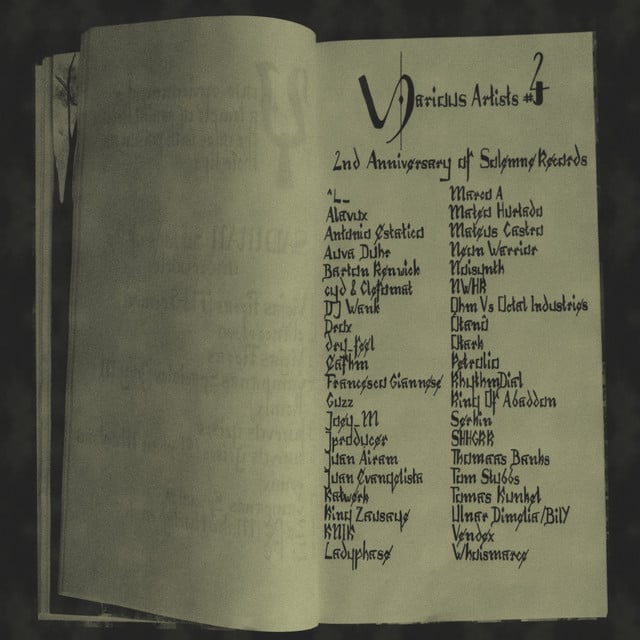 Various Artists
2nd Anniversary of Solemne Records
^L_
Alavux
Antonio Estatico
Auva Duhr
Barton Renwick
cyd & Clefomat
DJ Wank
Drax
dry_feel
Francesco Giannese
Guzz
Joey_M
Jproducer
Juan Airam
Juan Evangelista
Katwerk
King Zausage
KNIK
Ladyphase
Marco A
Mateo Hurtado
Mateus Castro
Neon Warrior
Noisynth
NWHR
Ohm Vs Octal Industries
Otanö
Otark
Petrolio
RhythmDial
Ring Of Abaddon
Serkin
SHHGRR
Thomaas Banks
Tom Stubbs
Tomas Kunkel
Ulnar Dimelia/BilY
Vendex
Whoismarco